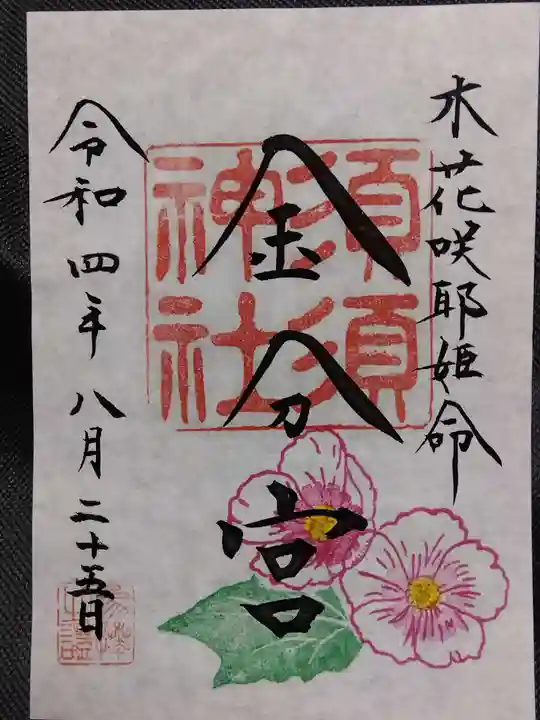 木花咲耶姫命
須須
神社
金分宮
令和四年八月二十五日